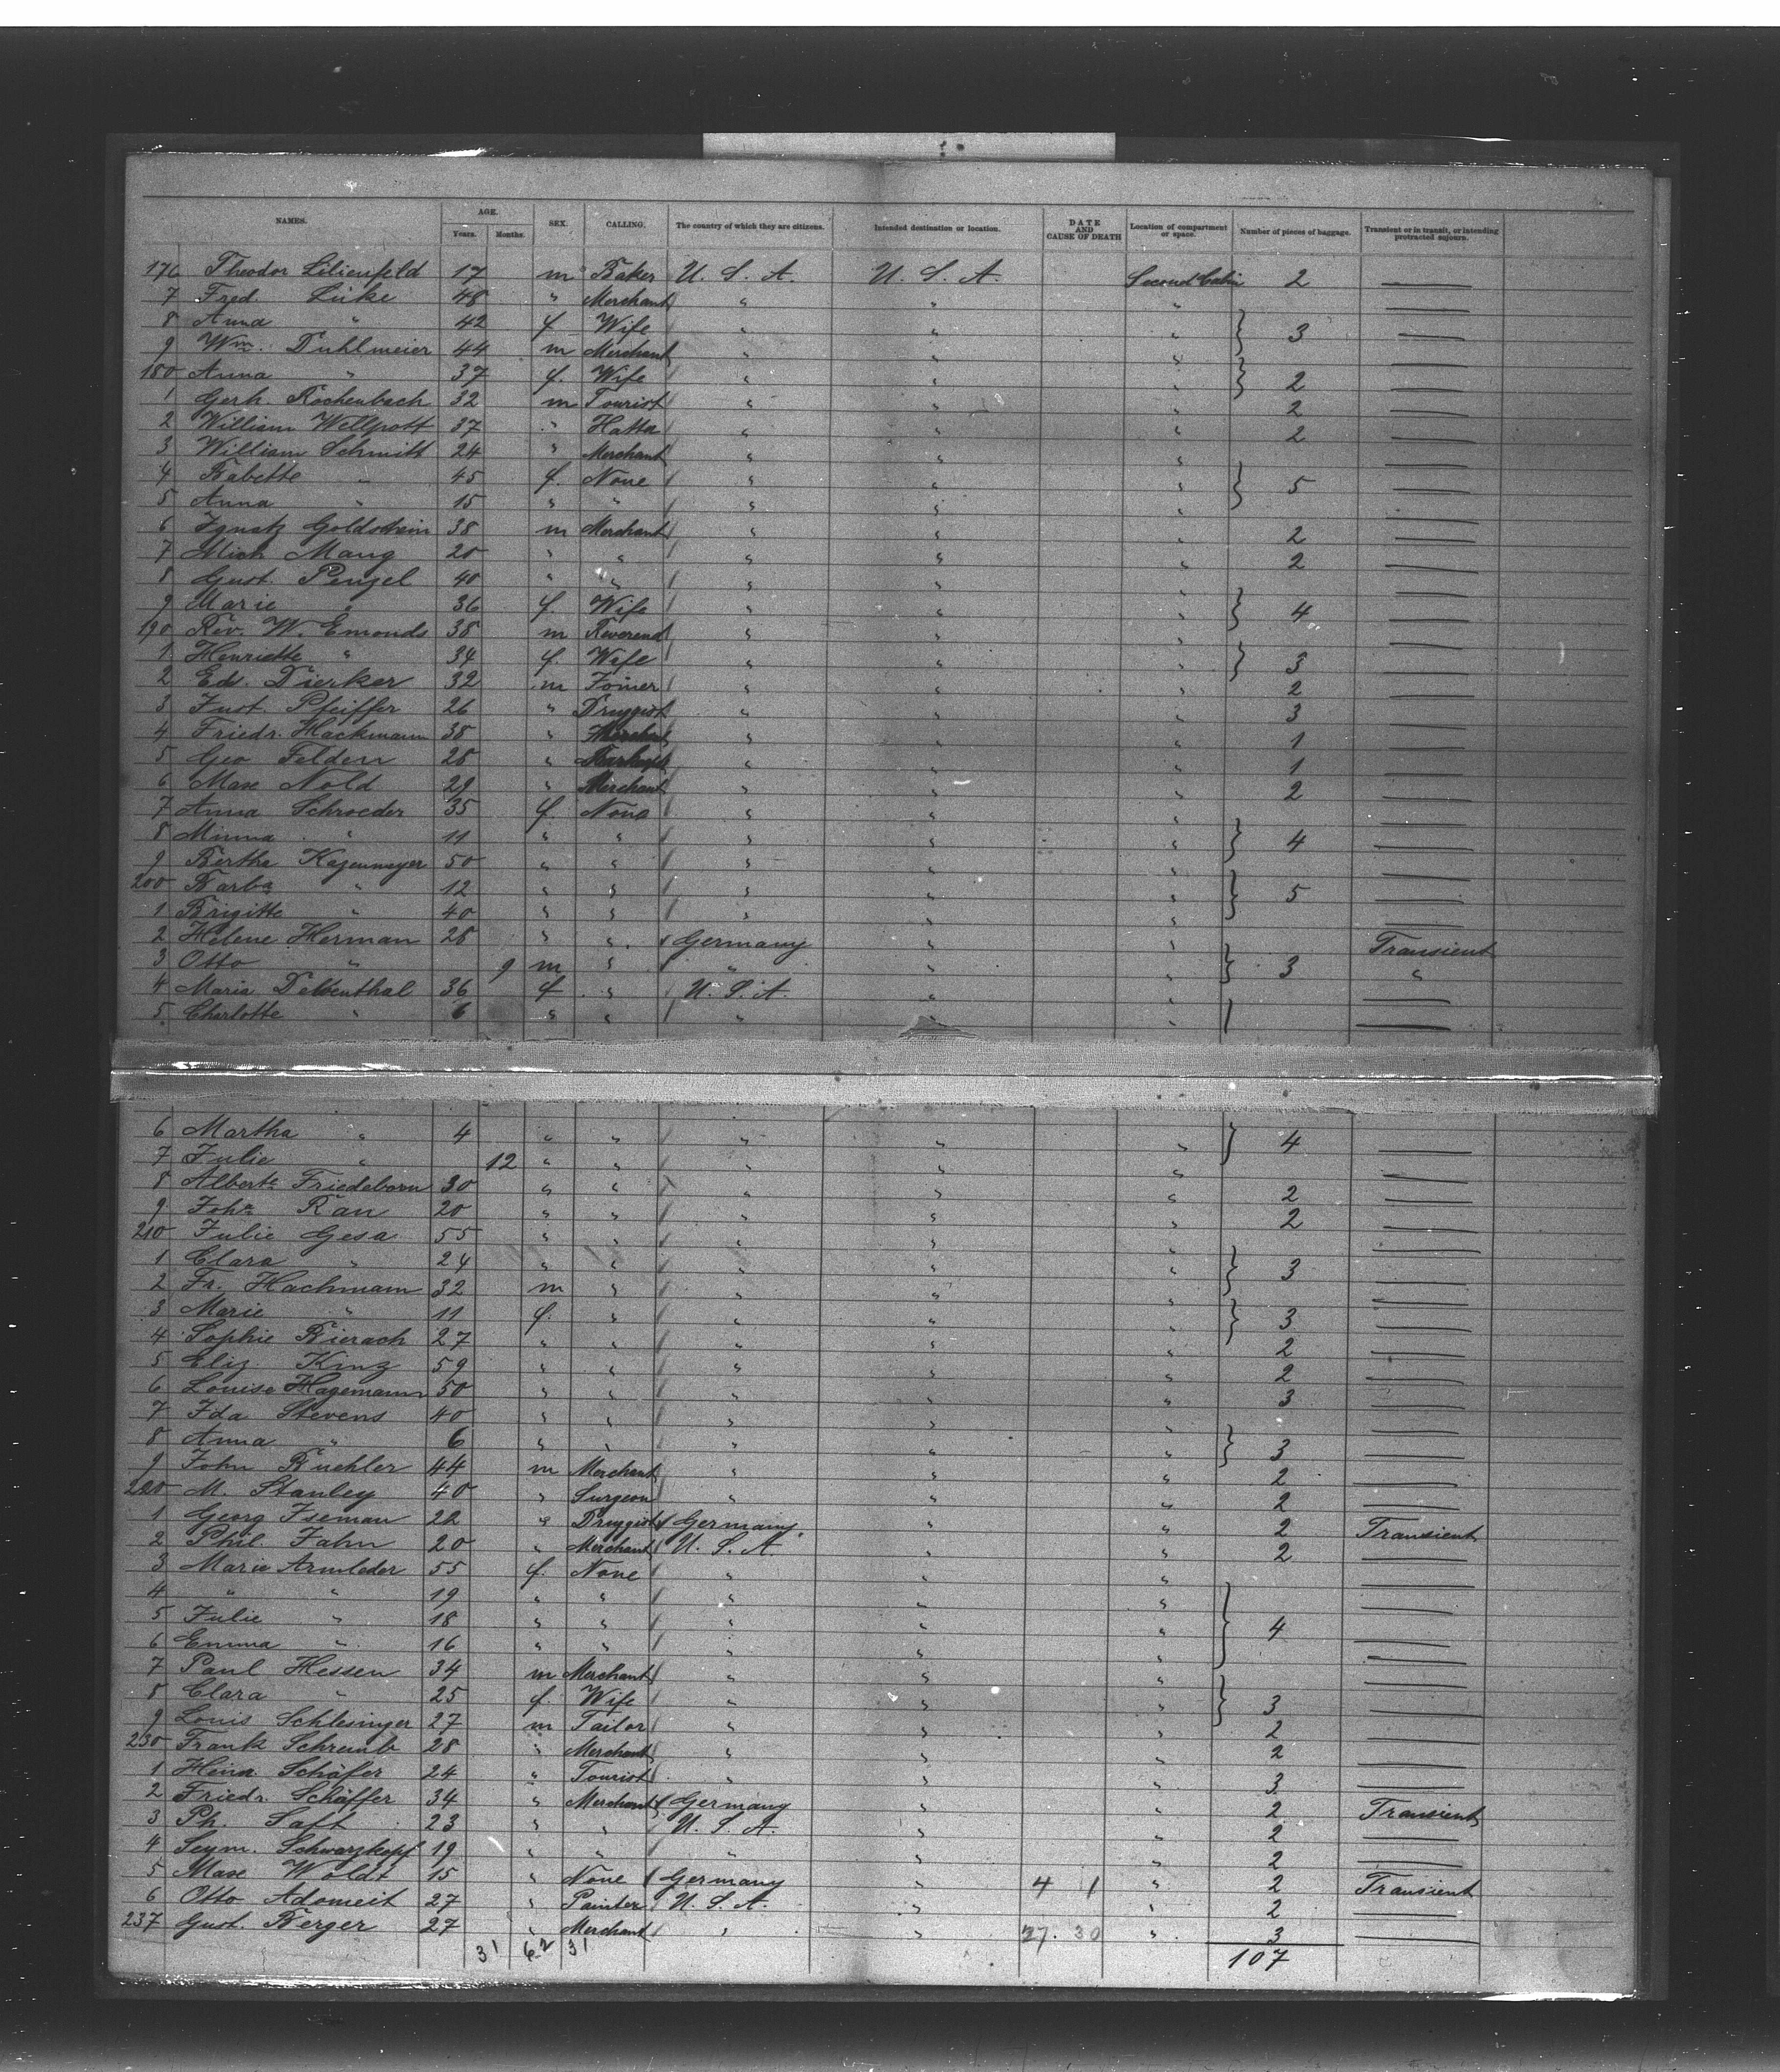 NAMES. AGE. Years. Months. SEX. CALLING. The country of which they are citizens. Intended destination or location. DATE AND CAUSE OF DEATH Location of compartment or space. Number of pieces of baggage. Transient or in transit, or intending protracted sojourn.
176 Theodor Lilienfeld 17 m Baker U. S. A. U. S. A. Second Cabin 2 —
7 Fred. Lüke 48 " Merchant " " " —
8 Anna " 42 f Wife " " " 3 —
9 Wm. Duhlmeier 44 m Merchant " " " —
180 Anna " 37 f. Wife " " " 2 —
1 Gerh. Rochenbach 32 m Tourist " " " 2 —
2 William Wellpott 37 " Hatta " " " 2 —
3 William Schmitt 24 " Merchant " " " —
4 Babette " 45 f. None " " " 5 —
5 Anna " 15 " " " " " —
6 Ignatz Goldstein 38 m Merchant " " " 2 —
7 Mich Mang 20 " " " " " 2 —
8 Gust. Penzel 40 " " " " " —
9 Marie " 36 f. Wife " " " 4 —
190 Rev. W. Emonds 38 m Reverend " " " —
1 Henriette " 34 f. Wife " " " 3 —
2 Ed. Dierker 32 m Joiner " " " 2 —
3 Just. Pfeiffer 26 " Druggist " " " 3 —
4 Friedr. Hackmann 38 " " " " 1 —
5 Geo Felden 28 " " " " 1 —
6 Max Nold 29 " Merchant " " " 2 —
7 Anna Schroeder 35 f. None " " " —
8 Minna " 11 " " " " " 4 —
9 Bertha Kazenmayer 50 " " " " " —
200 Barba " 12 " " " " " 5 —
1 Brigitte " 40 " " " " " —
2 Helene Herman 28 " " Germany " " Transient
3 Otto " 9 m " " " " 3 "
4 Maria Delventhal 36 f " U. S. A. " " —
5 Charlotte " 6 " " " " " —
6 Martha " 4 " " " " " 4 —
7 Julie " 12 " " " " " —
8 Alberte Friedeborn 30 " " " " " 2 —
9 Joha Rau 20 " " " " " 2 —
210 Julie Gesa 55 " " " " " —
1 Clara " 24 " " " " " 3 —
2 Fr. Hachmann 32 m " " " " —
3 Marie " 11 f. " " " " 3 —
4 Sophie Bierach 27 " " " " " 2 —
5 Eliz. Kinz 59 " " " " " 2 —
6 Louise Hagemann 50 " " " " " 3 —
7 Ida Stevens 40 " " " " " —
8 Anna " 6 " " " " " 3 —
9 John Buehler 44 m Merchant " " " 2 —
220 M. Stanley 40 " Surgeon " " " 2 —
1 Georg Iseman 22 " Druggist Germany. " " 2 Transient
2 Phil. Jahn 20 " Merchant U. S. A. " " 2 —
3 Marie Armleder 55 f. None " " " —
4 " " 19 " " " " " —
5 Julie " 18 " " " " " 4 —
6 Emma " 16 " " " " " —
7 Paul Hessen 34 m Merchant " " " —
8 Clara " 25 f. Wife " " " 3 —
9 Louis Schlesinger 27 m Tailor " " " 2 —
230 Frank Schremb 28 " Merchant " " " 2 —
1 Heinr. Schäfer 24 " Tourist " " " 3 —
2 Friedr. Schäffer 34 " Merchant Germany " " 2 Transient
3 Ph. Saft 23 " " U. S. A. " " 2 —
4 Seym. Schwarzkopf 19 " " " " " 2 —
5 Max Woldt 15 " None Germany " 4 1 " 2 Transient
6 Otto Adomeit 27 " Painter U. S. A. " " 2 —
237 Gust. Berger 27 " Merchant " " 27. 30 " 3 —
31 62 31 107